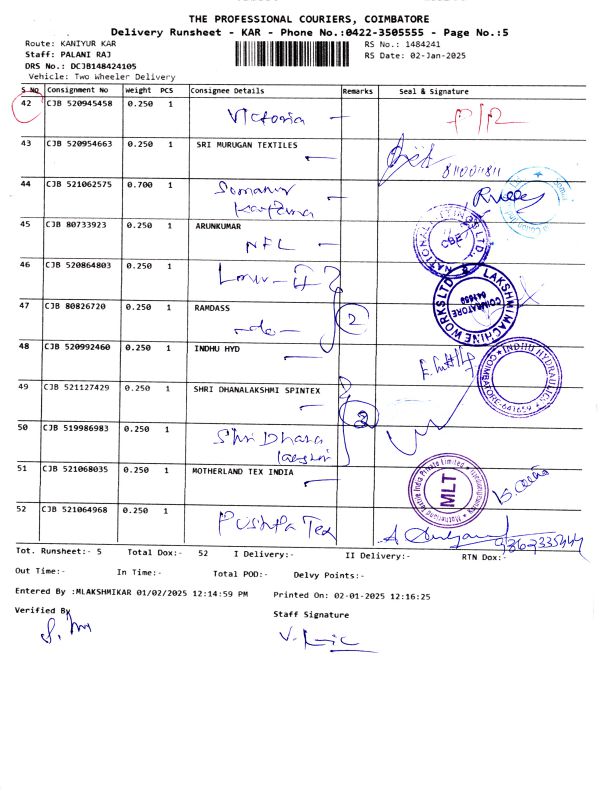 THE PROFESSIONAL COURIERS, COIMBATORE
Delivery Runsheet - KAR - Phone No.:0422-3505555 - Page No.:5
Route: KANIYUR KAR
RS No.: 1484241
Staff: PALANI RAJ
RS Date: 02-Jan-2025
DRS No.: DCJB148424105
Vehicle: Two Wheeler Delivery
S No Consignment No Weight PCS Consignee Details Remarks Seal & Signature
42 CJB 520945458 0.250 1 Victoria
43 CJB 520954663 0.250 1 SRI MURUGAN TEXTILES
44 CJB 521062575 0.700 1 Somanur
45 CJB 80733923 0.250 1 ARUNKUMAR
NFL
46 CJB 520864803 0.250 1
47 CJB 80826720 0.250 1 RAMDASS 2
48 CJB 520992460 0.250 1 INDHU HYD
49 CJB 521127429 0.250 1 SHRI DHANALAKSHMI SPINTEX
2
50 CJB 519986983 0.250 1 Shri Dhana
51 CJB 521068035 0.250 1 MOTHERLAND TEX INDIA MLT
52 CJB 521064968 0.250 1 Pushpa Tex
LAKSHMI MACHINE WORKS LTD
COIMBATORE
INDHU HYDRAULICS
COIMBATORE-641659
CBE
Tot. Runsheet:- 5 Total Dox:- 52 I Delivery:- II Delivery:- RTN Dox:-
Out Time:- In Time:- Total POD:- Delvy Points:-
Entered By :MLAKSHMIKAR 01/02/2025 12:14:59 PM Printed On: 02-01-2025 12:16:25
Verified By Staff Signature